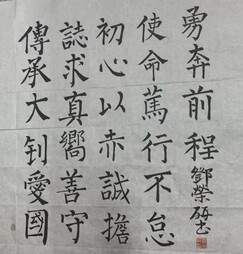 傳承大钊愛國
誌求真嚮善守
初心以赤誠擔
使命篤行不怠
勇奔前程
鄧榮书